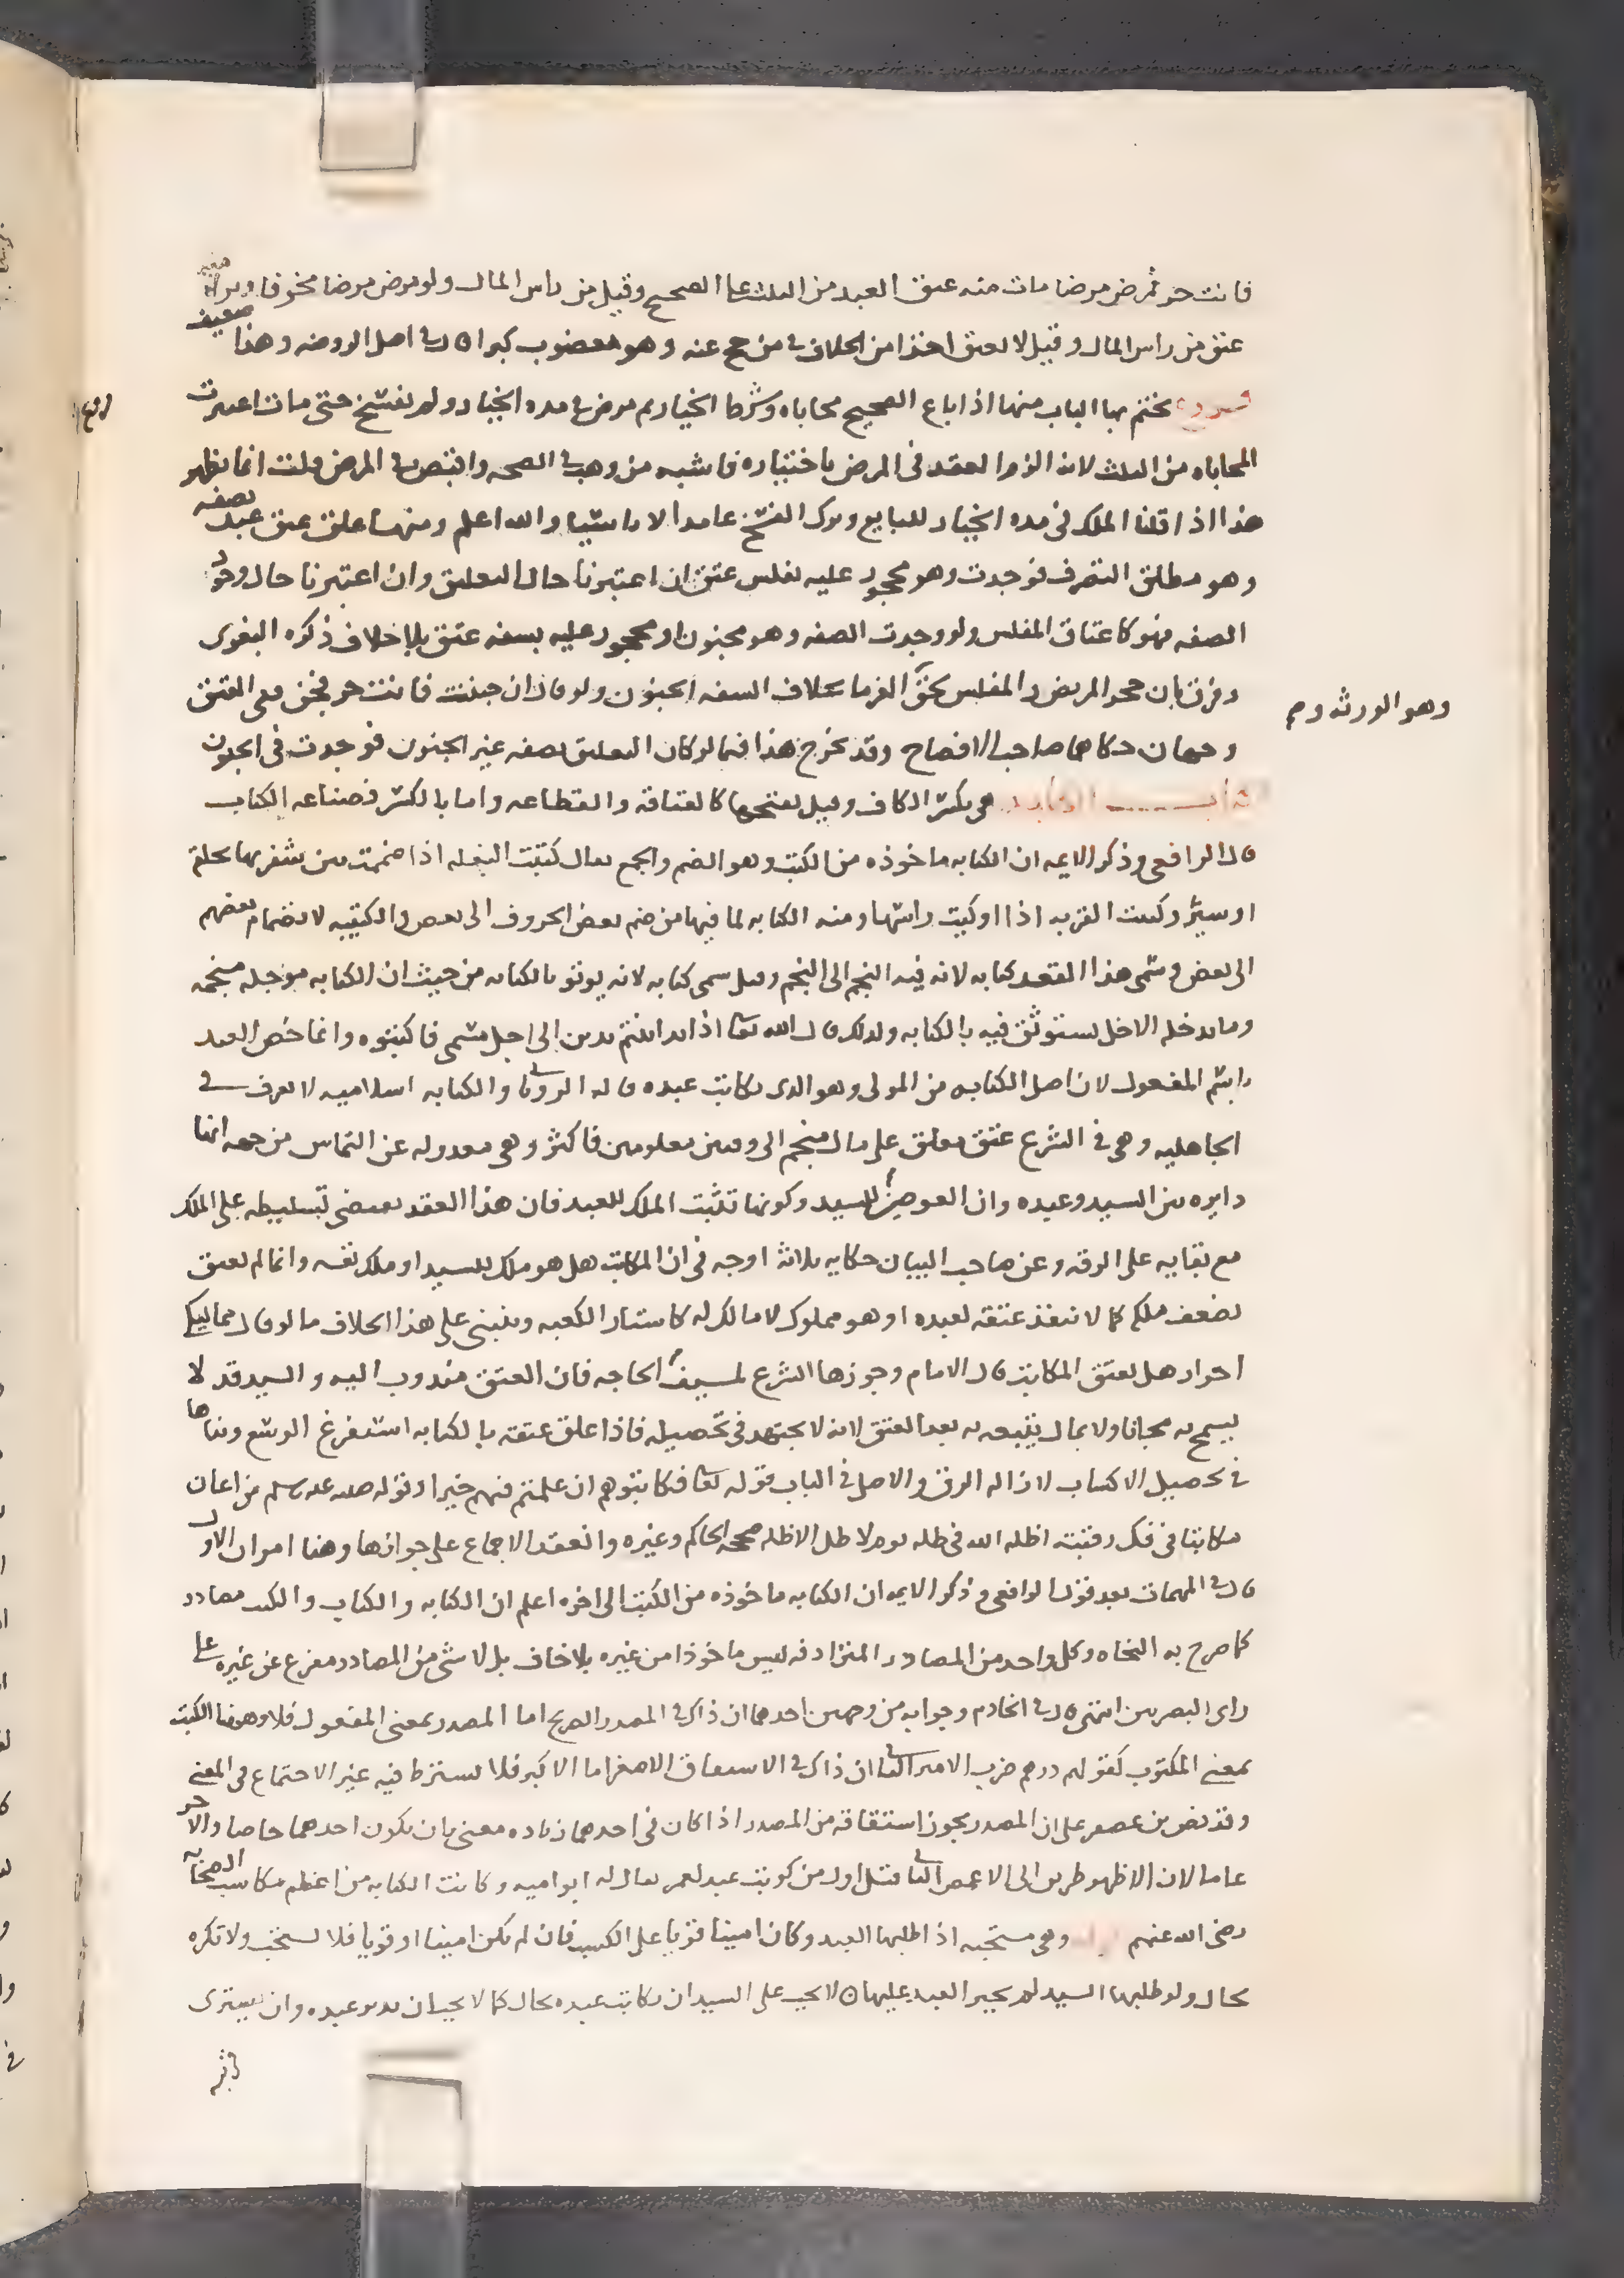 فانت حر ثم مرض مرضا مات منه عتق العبد من الثلث على الصحيح وقيل من راس المال ولو مرض مرضا مخوفا وبرا
عتق من راس المال وقيل لا يعتق اخذا من الخلاف في من حج عنه وهو معضوب فبرا قال في اصل الروضه وهذا ضعيف
فروع نختم بها الباب منها اذا باع الصحيح محاباه وشرط الخيار ثم مرض في مده الخيار ولم يفسخ حتى مات اعتبرت
المحاباه من الثلث لانه الزم العقد في المرض باختياره فاشبه من وهب في الصحه واقبض في المرض قلت انما يظهر
هذا اذا قلنا الملك في مده الخيار للبايع وترك الفسخ عامدا لا ناسيا والله اعلم ومنها علق عتق عبد بصفه
وهو مطلق التصرف فوجدت وهو محجور عليه بفلس عتق ان اعتبرنا حال التعليق وان اعتبرنا حال وجود
الصفه فهو كاعتاق المفلس ولو وجدت الصفه وهو مجنون او محجور عليه بسفه عتق بلا خلاف ذكره البغوى
وفرق بان حجر المريض والمفلس لحق الغرما بخلاف السفه والجنون ولو قال ان جننت فانت حر فجن ففي العتق
وهو الورثه وم
وجهان حكاهما صاحب الافصاح وقد يخرج هذا فيما لو كان التعليق بصفه غير الجنون فوجدت في الجنون
كتاب الكتابه هي بكسر الكاف وقيل بفتحها كالعتاقه والقطاعه واما بالكسر فصناعه الكتاب
قال الرافعي وذكر الايمه ان الكتابه ماخوذه من الكتب وهو الضم والجمع يقال كتبت البغله اذا ضممت بين شفريها بحلقه
او سير وكتبت القربه اذا اوكيت راسها ومنه الكتابه لما فيها من ضم بعض الحروف الى بعض والكتيبه لانضمام بعضهم
الى بعض وسمي هذا العقد كتابه لانه فيه النجم الى النجم وقيل سمي كتابه لانه يوثق بالكتابه من حيث ان الكتابه موجله منجمه
وما يدخله الاجل يستوثق فيه بالكتابه ولذلك قال الله تعا اذا تداينتم بدين الى اجل مسمى فاكتبوه وانما خص العبد
باسم المفعول لان اصل الكتابه من المولى وهو الذى يكاتب عبده قاله الرويانى والكتابه اسلاميه لا تعرف في
الجاهليه وهي في الشرع عتق معلق على مال منجم الى وقتين معلومين فاكثر وهي معدوله عن القياس من جهه انها
دايره بين السيد وعبده وان العوضين للسيد وكونها تثبت الملك للعبد فان هذا العقد يقتضي تسليطه على الملك
مع بقايه على الرق وعن صاحب البيان حكايه ثلاثه اوجه في ان المكاتب هل هو ملك للسيد او ملك نفسه وانما لم يعتق
لضعف ملكه كما لا ينفذ عتقه لعبده او هو مملوك لا مالك له كاستار الكعبه وينبني على هذا الخلاف ما لو قال مماليكي
احرار هل يعتق المكاتب قال الامام وجوزها الشرع لمسيس الحاجه فان العتق مندوب اليه والسيد قد لا
يسمح به مجانا ولا بمال يتبعه به بعد العتق لانه لا يجتهد في تحصيله فاذا علق عتقه بالكتابه استفرغ الوسع وتناها
في تحصيل الاكتساب لازاله الرق والاصل في الباب قوله تعا فكاتبوهم ان علمتم فيهم خيرا وقوله صلى الله عليه وسلم من اعان
مكاتبا في فك رقبته اظله الله في ظله يوم لا ظل الا ظله صححه الحاكم وغيره وانعقد الاجماع على جوازها وهنا امران الاول
قال في المهمات بعد قول الرافعي وذكر الايمه ان الكتابه ماخوذه من الكتب الى اخره اعلم ان الكتابه والكتاب والكتب مصادر
كما صرح به النحاه وكل واحد من المصادر المترادفه ليس ماخوذا من غيره بلا خلاف بل لا شي من المصادر مفرع عن غيره على
راى البصريين انتهى قال في الخادم وجوابه من وجهين احدهما ان ذاك في المصدر الصريح اما المصدر بمعنى المفعول فلا وهو هنا الكتب
بمعنى المكتوب كقولهم درهم ضرب الامير الثانى ان ذاك في الاشتقاق الاصغر اما الاكبر فلا يشترط فيه غير الاجتماع في المعنى
وقد نص بن عصفور على ان المصدر يجوز اشتقاقه من المصدر اذا كان في احدهما زياده معنى بان يكون احدهما خاصا والاخر
عاما لان الاظهر طريق الى الاعم الثانى قيل اول من كوتب عبد لعمر يقال له ابو اميه وكانت الكتابه من اعظم مكاسب الصحابه
رضى الله عنهم قوله وهي مستحبه اذا طلبها العبد وكان امينا قويا على الكسب فان لم يكن امينا او قويا فلا تستحب ولا تكره
بحال ولو طلبها السيد لم يجبر العبد عليها لا يجب على السيد ان يكاتب عبده بحال كما لا يجب ان يدبر عبده وان يشترى